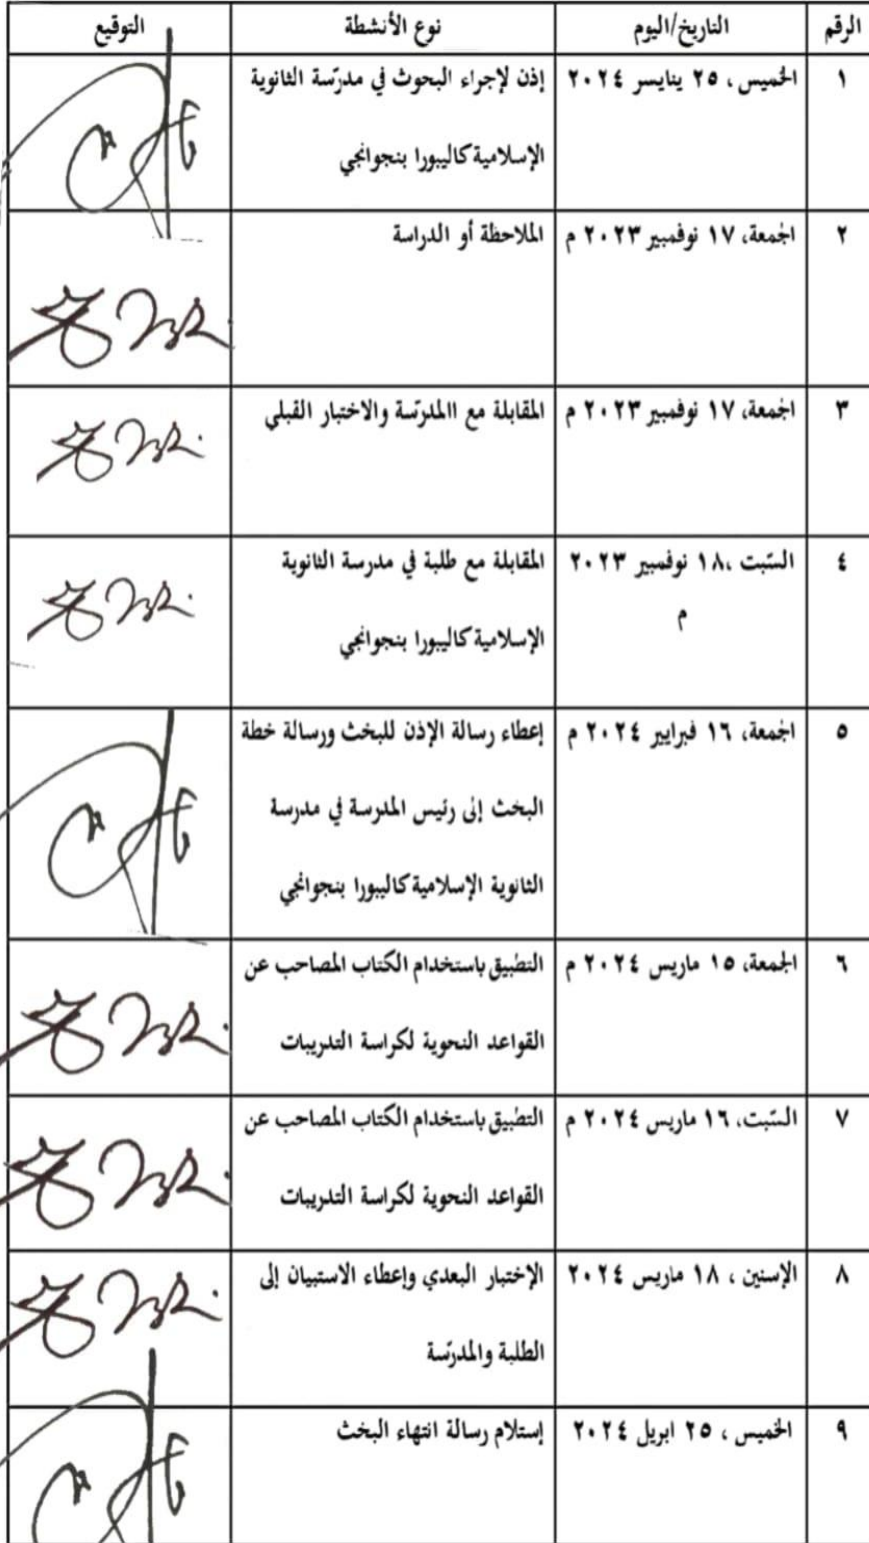 الرقم التاريخ/اليوم نوع الأنشطة التوقيع
١ الخميس، ٢٥ ينايسر ٢٠٢٤ إذن لإجراء البحوث في مدرّسة الثانوية
الإسلامية كاليبورا بنجوانجي
٢ الجمعة، ١٧ نوفمبير ٢٠٢٣ م الملاحظة أو الدراسة
٣ الجمعة، ١٧ نوفمبير ٢٠٢٣ م المقابلة مع االمدرّسة والاختبار القبلي
٤ السّبت ،١٨ نوفمبير ٢٠٢٣ المقابلة مع طلبة في مدرسة الثانوية
م الإسلامية كاليبورا بنجوانجي
٥ الجمعة، ١٦ فبرايير ٢٠٢٤ م إعطاء رسالة الإذن للبخث ورسالة خطة
البخث إلى رئيس المدرسة في مدرسة
الثانوية الإسلامية كاليبورا بنجوانجي
٦ الجمعة، ١٥ ماريس ٢٠٢٤ م التطبيق باستخدام الكتاب المصاحب عن
القواعد النحوية لكراسة التدريبات
٧ السّبت، ١٦ ماريس ٢٠٢٤ م التطبيق باستخدام الكتاب المصاحب عن
القواعد النحوية لكراسة التدريبات
٨ الإسنين ، ١٨ ماريس ٢٠٢٤ الإختبار البعدي وإعطاء الاستبيان إلى
الطلبة والمدرّسة
٩ الخميس ، ٢٥ ابريل ٢٠٢٤ إستلام رسالة انتهاء البخث